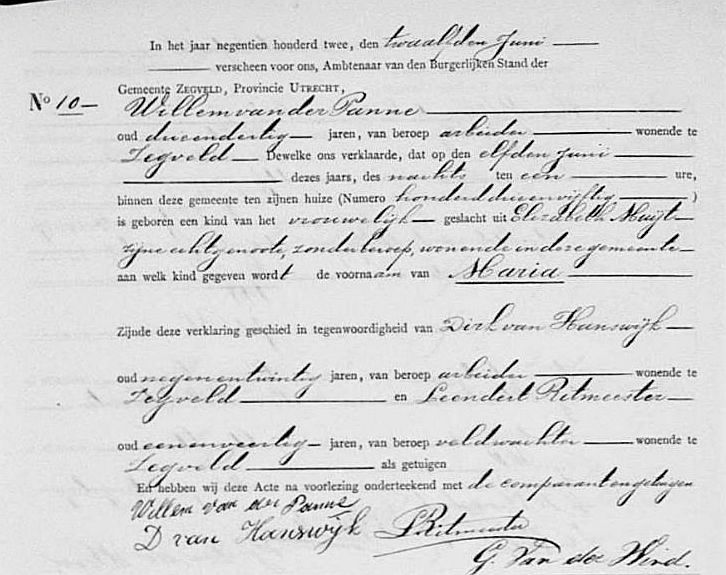 In het jaar negentien honderd twee, den twaalfden Juni
verscheen voor ons, Ambtenaar van den Burgerlijken Stand der
Gemeente ZEGVELD, Provincie UTRECHT,
No 10 Willem van der Panne
oud drieendertig jaren, van beroep arbeider wonende te
Zegveld Dewelke ons verklaarde, dat op den elfden Juni
dezes jaars, des nachts ten een ure,
binnen deze gemeente ten zijnen huize (Numero honderd drieenvijftig )
is geboren een kind van het vrouwelijk geslacht uit Elizabeth Muijt
zijne echtgenoote, zonder beroep, wonende in deze gemeente
aan welk kind gegeven wordt de voornaam van Maria
Zijnde deze verklaring geschied in tegenwoordigheid van Dirk van Hanswijk
oud negenentwintig jaren, van beroep arbeider wonende te
Zegveld en Leendert Ritmeester
oud eenenveertig jaren, van beroep veldwachter wonende te
Zegveld als getuigen
En hebben wij deze Acte na voorlezing onderteekend met de comparant en getuigen
Willem van der Panne
D van Hanswijk LRitmeester
G. Van der Wind.